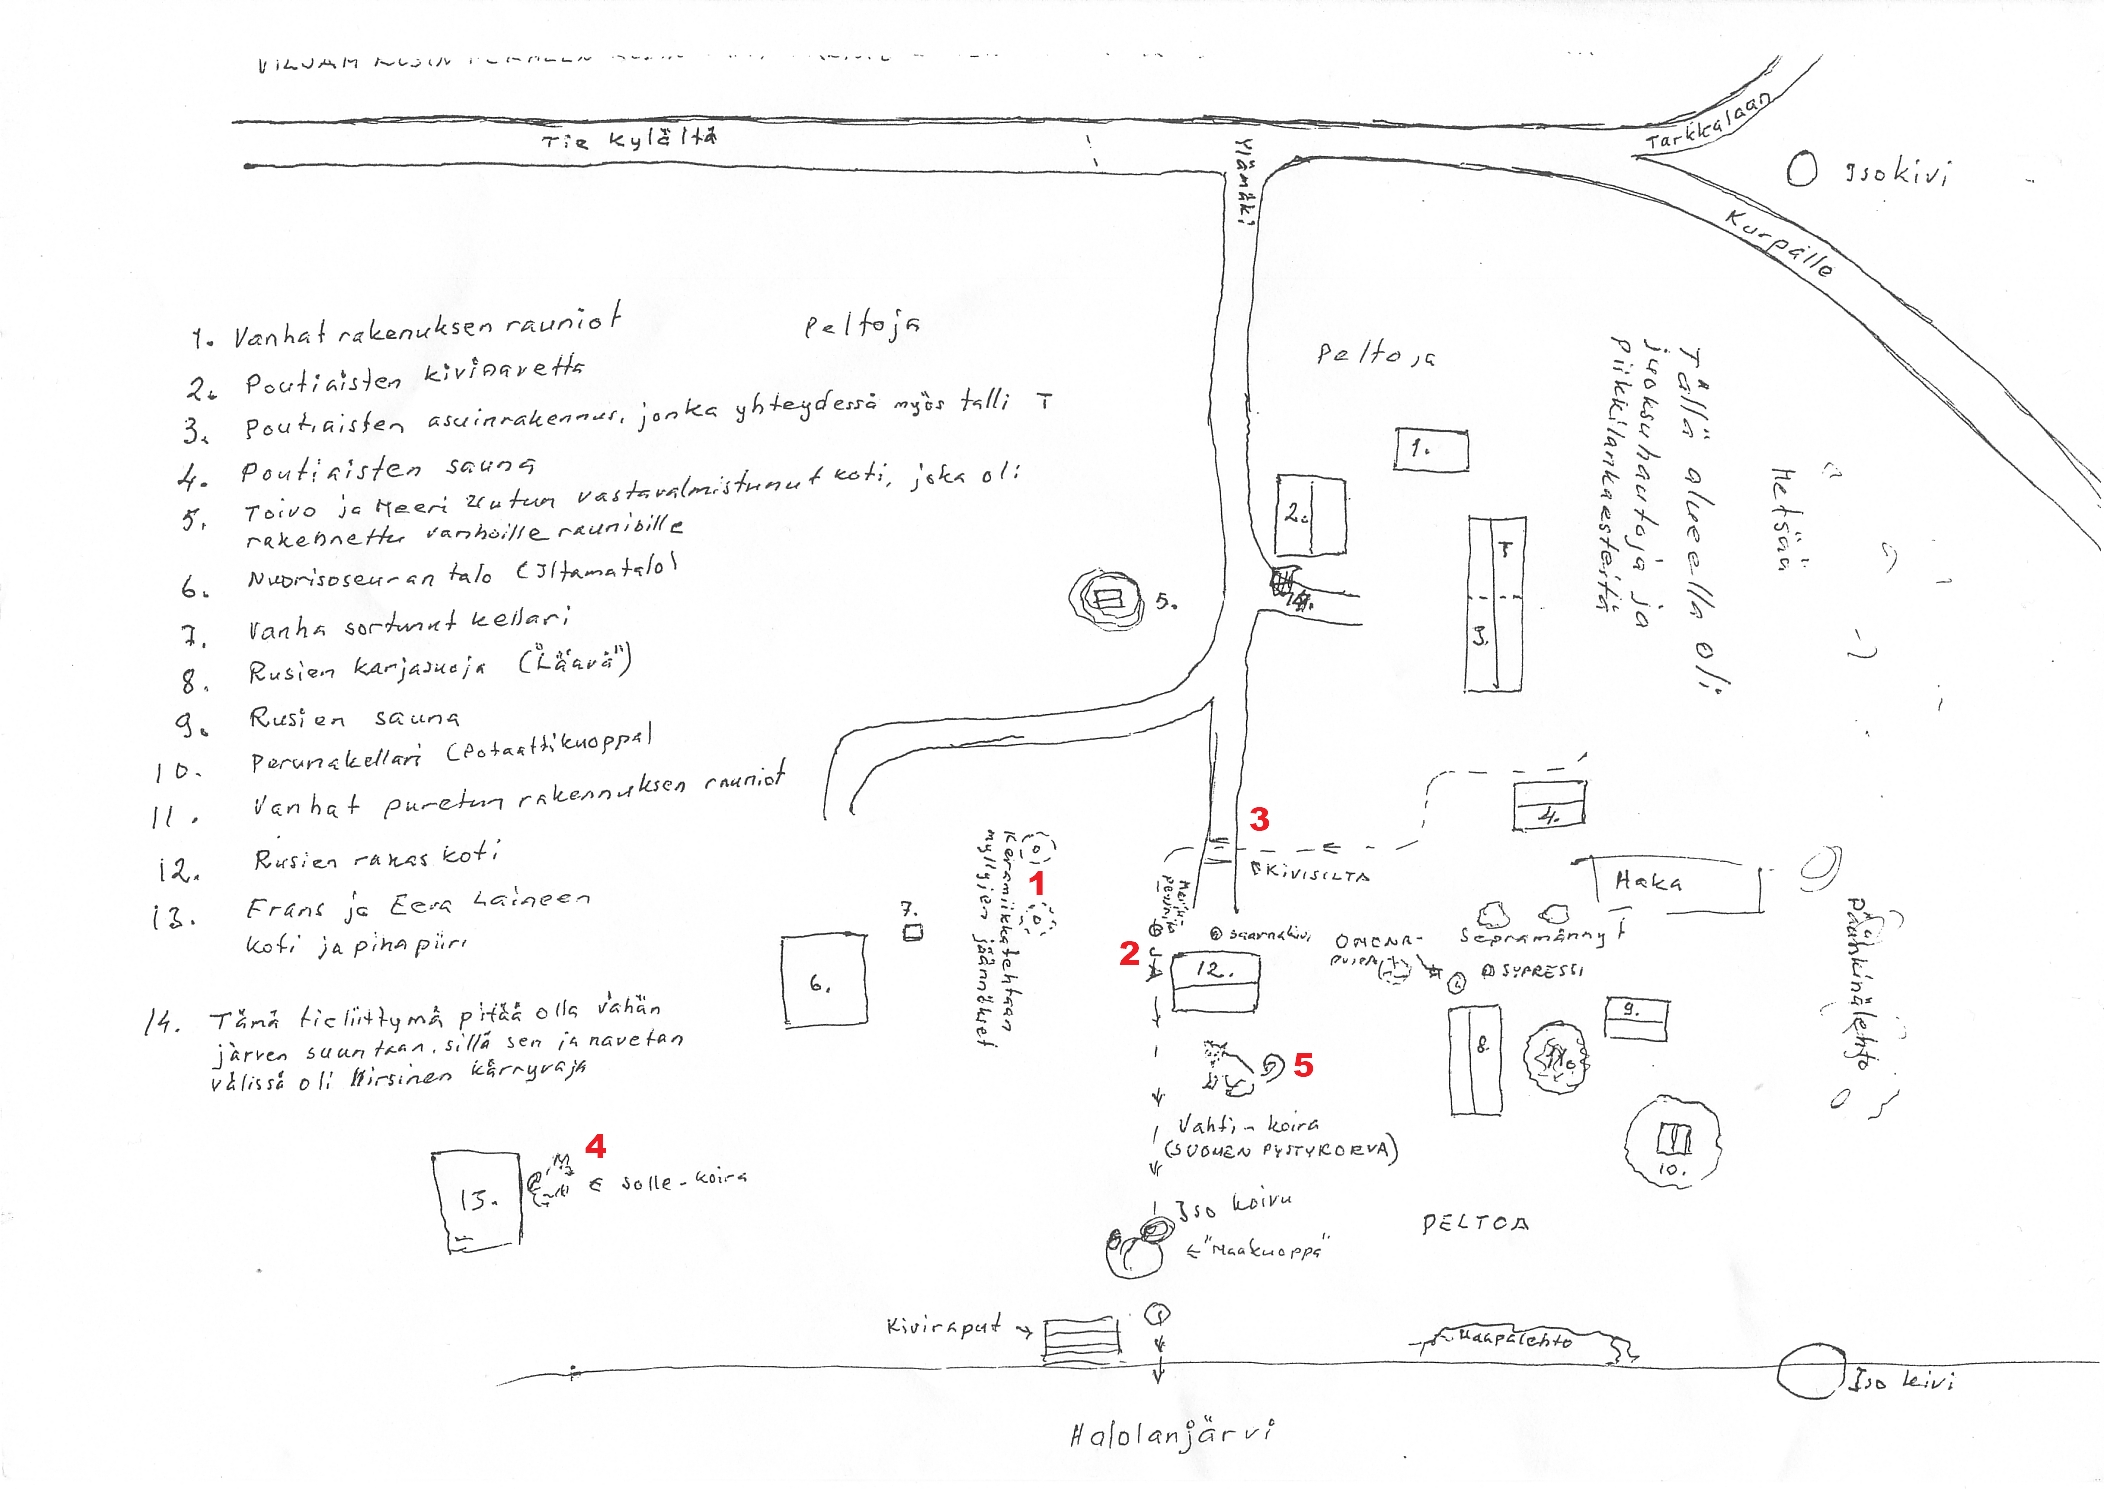 Tie kylältä
Ylämäki
Tarkkalaan
Isokivi
Kurpälle
Peltoja
Peltoja
Tällä alueella oli
juoksuhautoja ja
piikkilankaesteitä
Metsää
1. Vanhat rakenuksen rauniot
2. Poutiaisten kivinavetta
3. Poutiaisten asuinrakennus, jonka yhteydessä myös talli T
4. Poutiaisten sauna
5. Toivo ja Meeri Uutun vastavalmistunut koti, joka oli
rakennettu vanhoille raunioille
6. Nuorisoseuran talo (Iltamatalo)
7. Vanha sortunut kellari
8. Rusien karjasuoja ("Läävä")
9. Rusien sauna
10. Perunakellari (Potaattikuoppa)
11. Vanhat puretun rakennuksen rauniot
12. Rusien rakas koti
13. Frans ja Eeva Laineen
koti ja pihapiiri
14. Tämä tieliittymä pitää olla vähän
järven suuntaan, sillä sen ja navetan
välissä oli Hirsinen kärryvaja
1.
2.
T
3.
14.
5.
4.
3
KIVISILTA
Haka
Keramiikkatehtaan
myllyjen jäännökset
1
7.
6.
2
OJA
12.
saarnakivi
OMENA-
PUITA
Sepramännyt
SYPRESSI
8.
9.
11.
10.
Pähkinälehto
5
Vahti-koira
(SUOMEN PYSTYKORVA)
4
13.
Solle-koira
Iso koivu
"Maakuoppa"
PELTOA
Kiviraput
Haapalehto
Iso kivi
Halolanjärvi